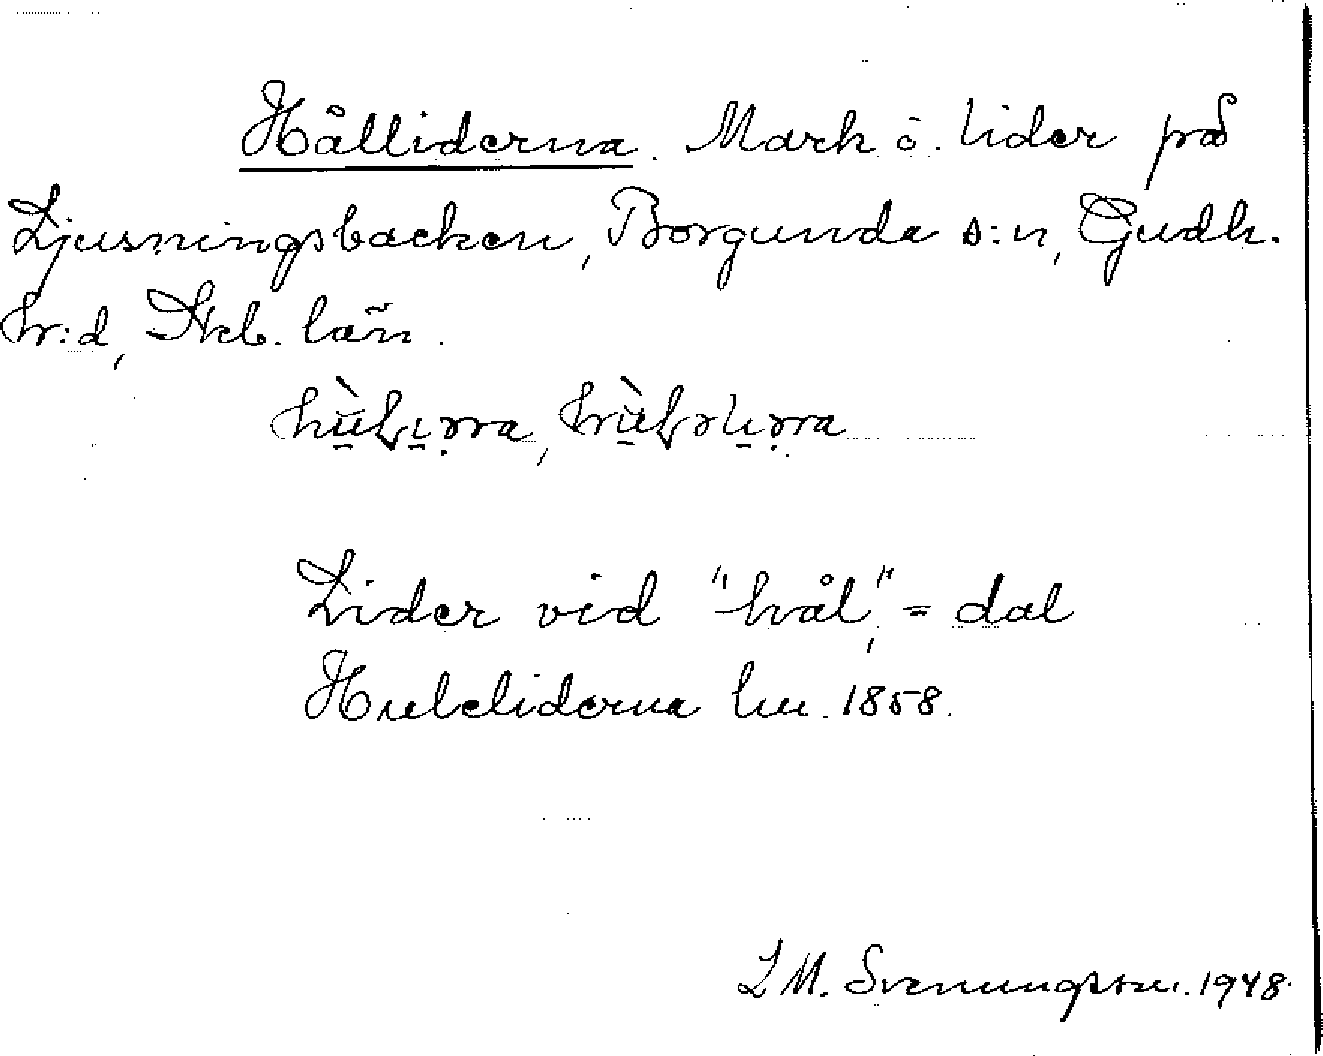 Hålliderna. Mark o. lider på
Ljusningsbacken, Borgunda s:n, Gudh.
hr:d, Skb. län.
Lider vid "hål", = dal
Huleliderna lm. 1858.
L M. Svenungsson. 1948.